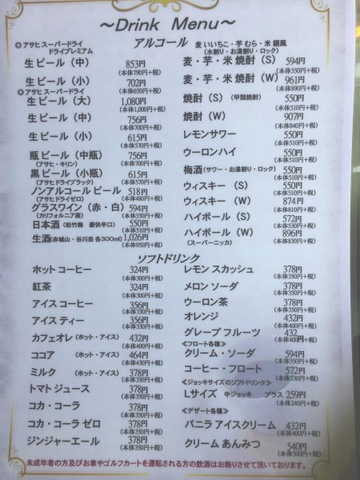 ～Drink Menu～
アルコール
◎アサヒ スーパードライ
ドライプレミアム
生ビール（中） 853円
(本体790円+税)
生ビール（小） 702円
(本体650円+税)
◎アサヒ スーパードライ
生ビール（大） 1,080円
(本体1,000円+税)
生ビール（中） 756円
(本体700円+税)
生ビール（小） 615円
(本体570円+税)
瓶ビール（中瓶） 756円
（アサヒ・キリン） (本体700円+税)
黒ビール（小瓶） 615円
（アサヒドライブラック） (本体570円+税)
ノンアルコールビール 518円
（アサヒドライゼロ） (本体480円+税)
グラスワイン（赤・白） 594円
（カリフォルニア産） (本体550円+税)
日本酒（松竹梅 豪快辛口） 550円
(本体510円+税)
生酒（赤城山・谷川岳 各300ml） 1,026円
(本体950円+税)
麦 いいちこ・芋 むら・米 銀風
（水割り・お湯割り・ロック）
麦・芋・米 焼酎（S） 594円
(本体550円+税)
麦・芋・米 焼酎（W） 961円
(本体890円+税)
焼酎（S）（甲類焼酎） 550円
(本体510円+税)
焼酎（W） 907円
(本体840円+税)
レモンサワー 550円
(本体510円+税)
ウーロンハイ 550円
(本体510円+税)
梅酒（サワー・お湯割り・ロック） 550円
(本体510円+税)
ウィスキー（S） 550円
(本体510円+税)
ウィスキー（W） 874円
(本体810円+税)
ハイボール（S） 572円
(本体530円+税)
ハイボール（W） 896円
（スーパーニッカ） (本体830円+税)
ソフトドリンク
ホット コーヒー 324円
(本体300円+税)
紅茶 324円
(本体300円+税)
アイス コーヒー 356円
(本体330円+税)
アイス ティー 356円
(本体330円+税)
カフェオレ（ホット・アイス） 432円
(本体400円+税)
ココア（ホット・アイス） 464円
(本体430円+税)
ミルク（ホット・アイス） 378円
(本体350円+税)
トマト ジュース 378円
(本体350円+税)
コカ・コーラ 378円
(本体350円+税)
コカ・コーラ ゼロ 378円
(本体350円+税)
ジンジャーエール 378円
(本体350円+税)
レモン スカッシュ 378円
(本体350円+税)
メロン ソーダ 378円
(本体350円+税)
ウーロン茶 378円
(本体350円+税)
オレンジ 432円
(本体400円+税)
グレープ フルーツ 432円
(本体400円+税)
≪フロート各種≫
クリーム・ソーダ 594円
(本体550円+税)
コーヒー・フロート 572円
(本体530円+税)
≪ジョッキサイズのソフトドリンク≫
Lサイズ 中ジョッキ プラス 259円
(本体240円+税)
≪デザート各種≫
バニラ アイスクリーム 432円
(本体400円+税)
クリーム あんみつ 540円
(本体500円+税)
未成年者の方及びお車やゴルフカートを運転される方の飲酒はお断りさせて頂いております。